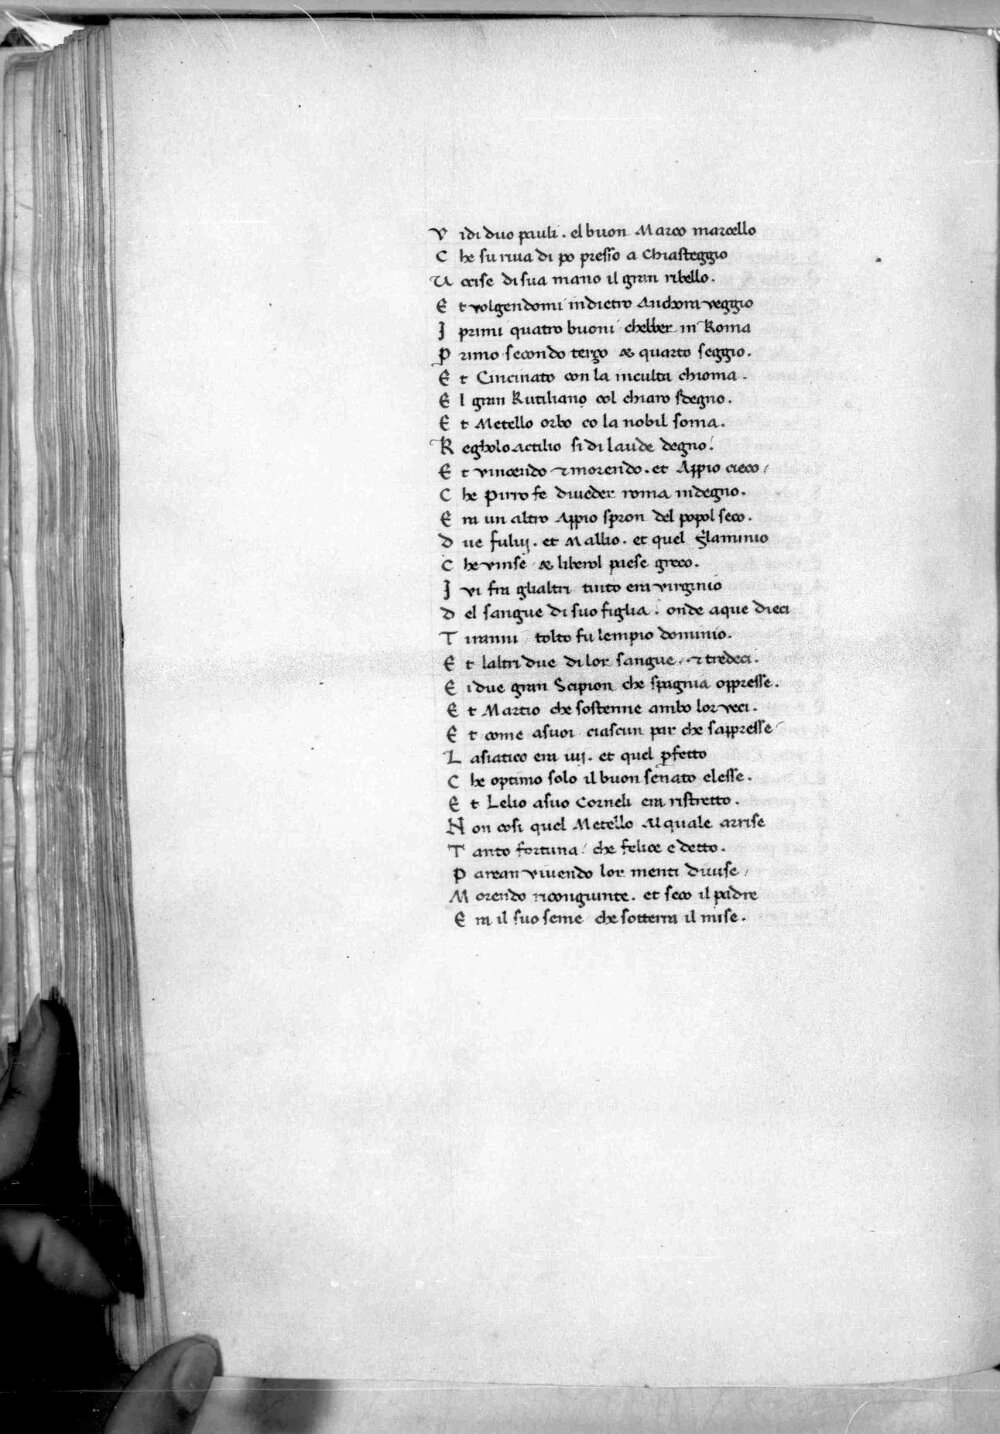 V idi duo pauli . el buon Marco marcello
C he su riua di po presso a Chiasteggio
U ccise di sua mano il gran ribello .
E t volgendomi indietro Anchora veggio
J primi quatro buoni chebber in Roma
P rimo secondo terzo & quarto seggio .
E t Cincinato con la inculta chioma .
E l gran Rutiliano col chiaro sdegno .
E t Metello orbo co la nobil soma .
R egholo actilio si di laude degno .
E t vincendo & morendo . et Appio cieco /
C he Pirro fe di veder roma indegno .
E ra un altro Appio spron del popol seco .
D ue fuluij . et Mallio . et quel flaminio
C he vinse & liberol paese greco .
J vi fra glialtri tinto era virginio
D el sangue di suo figlia . onde aque dieci
T iranni tolto fu lempio dominio .
E t laltri due di lor sangue . & tredeci .
E i due gran Scipion che spagnia oppresse .
E t Martio che sostenne ambo lor veci .
E t come asuoi ciascun par che sappresse
L asiatico era iiij . et quel pfetto
C he optimo solo il buon senato elesse .
E t Lelio asuo Corneli era ristretto .
N on cosi quel Metello Al quale arrise
T anto fortuna / che felice e detto .
P arean vivendo lor menti diuise /
M orendo ricongiunte . et seco il padre
E ra il suo seme che sotterra il mise .